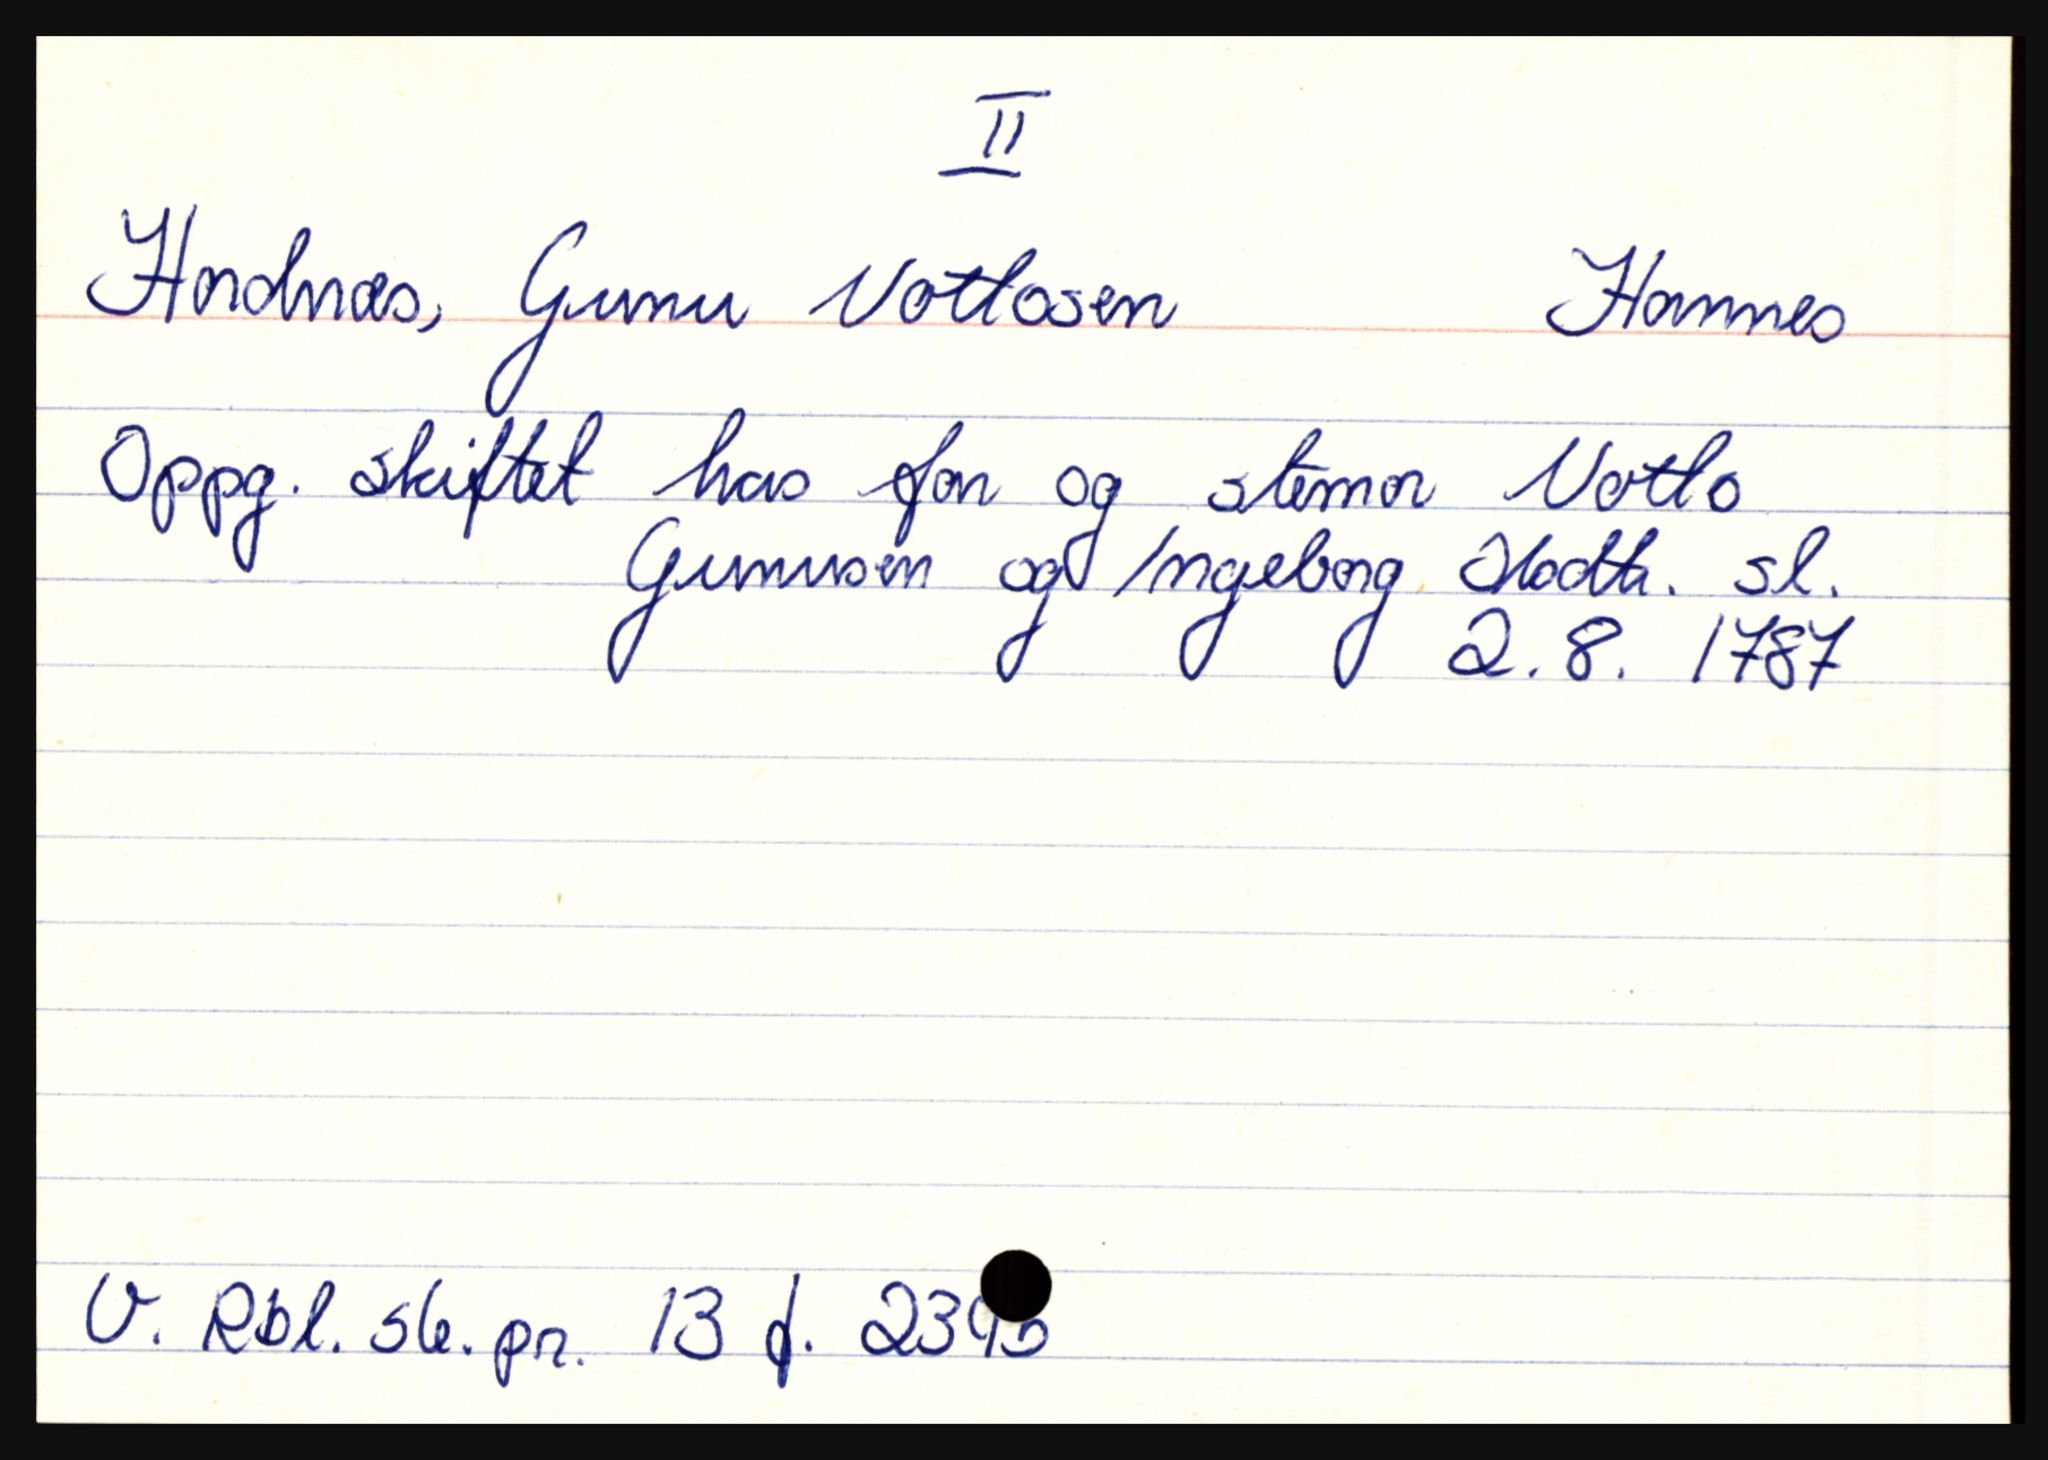 II
Hodnæs, Gunnu Votlosen Homnes
Oppg. skiftet hos far og stemor Votlo
Gunnusen og Ingeborg sl.
2. 8. 1787
V. Rbl. sk. pr. 13 f.